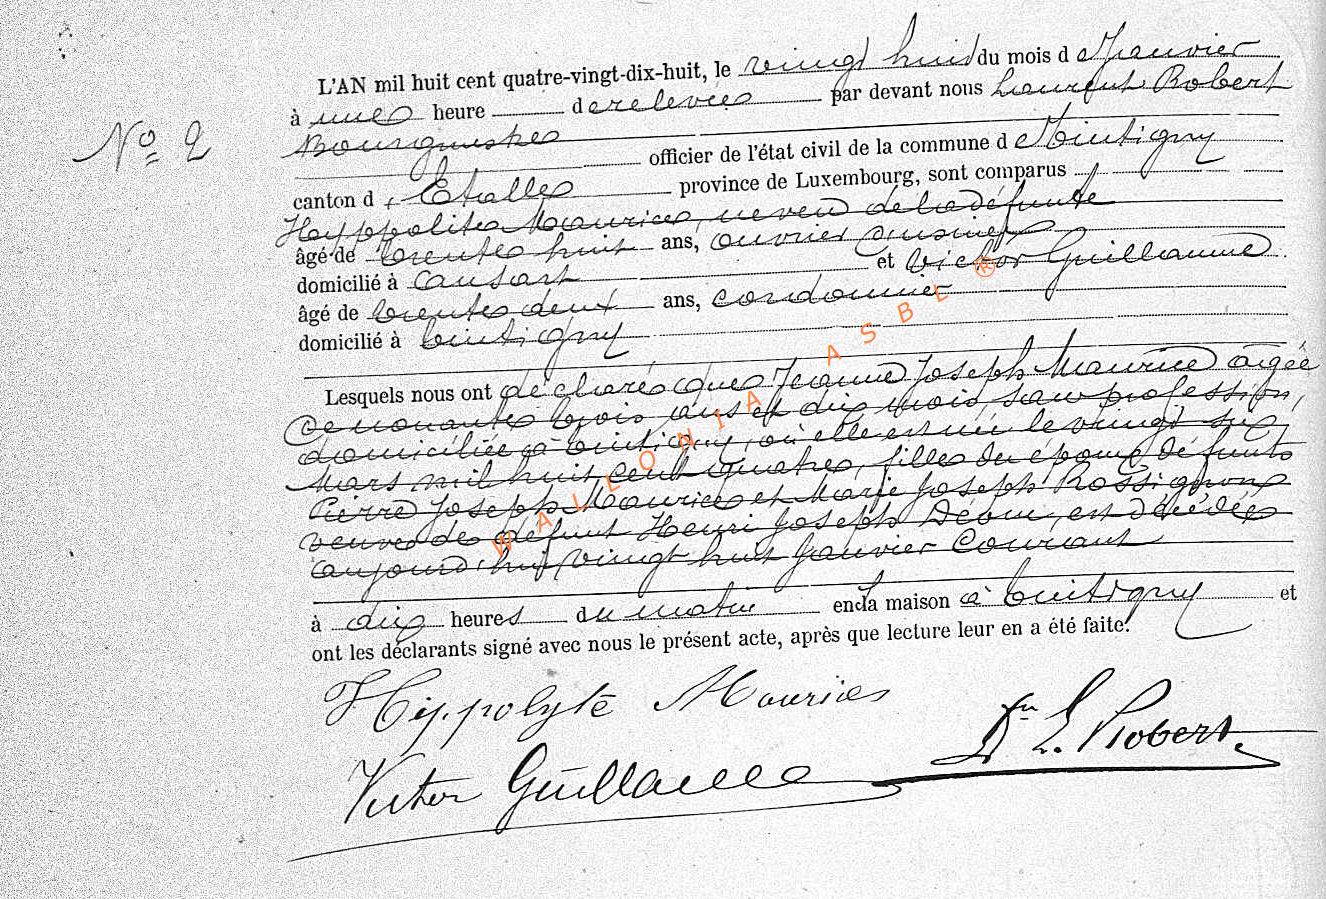 L'AN mil huit cent quatre-vingt-dix-huit, le vingt huit du mois d Janvier
à une heure de relevée par devant nous Laurent Robert
No 2
Bourgmestre
officier de l'état civil de la commune d e Tintigny
canton d' Etalle province de Luxembourg, sont comparus
Hyppolite Maurice, neveu de la défunte
âgé de trente huit ans, ouvrier
domicilié à Ansart et Victor Guillaume
âgé de trente deux ans, cordonnier
domicilié à Tintigny
Lesquels nous ont déclaré que Jeanne Joseph Maurice âgée
de nonante trois ans et dix mois sans profession,
domiciliée à Tintigny, où elle est née le vingt six
Mars mil huit cent quatre, fille des époux défunts
Pierre Joseph Maurice et Marie Joseph Rossignon
veuve de défunt Henri Joseph est décédée
aujourd'hui vingt huit Janvier Courant
à dix heures du matin en la maison à Tintigny et
ont les déclarants signé avec nous le présent acte, après que lecture leur en a été faite.
Hippolyte Maurice
Dr L. Robert.
Victor Guillaume
WALLONIA ASBL ®